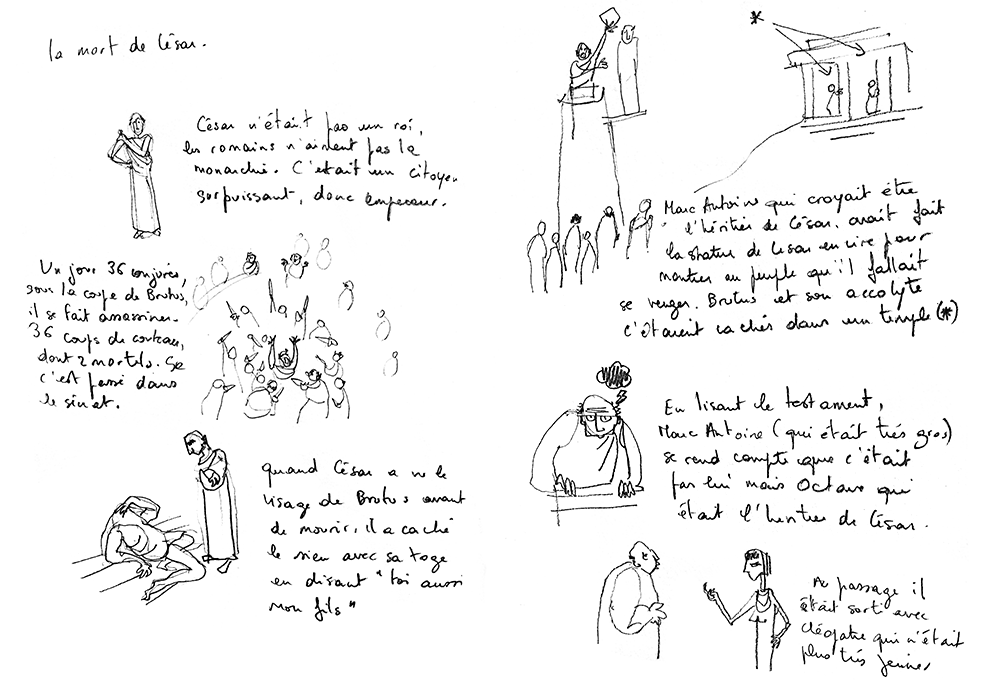 la mort de César.
César n'était pas un roi,
les romains n'aiment pas la
monarchie. C'était un citoyen
surpuissant, donc empereur.
Un jour 36 conjurés,
sous la coupe de Brutus,
il se fait assassiner.
36 coups de couteau,
dont 2 mortels. Se
c'est passé dans
le sénat.
quand César a vu le
visage de Brutus avant
de mourir, il a caché
le sien avec sa toge
en disant "toi aussi
mon fils"
*
Marc Antoine qui croyait être
l'héritier de César, avait fait
la statue de César en cire pour
montrer au peuple qu'il fallait
se venger. Brutus et son accolyte
c'étaient cachés dans un temple (*)
En lisant le testament,
Marc Antoine (qui était très gros)
se rend compte que c'était
pas lui mais Octave qui
était l'héritier de César.
Au passage il
était sorti avec
cléopatre qui n'était
plus très jeune